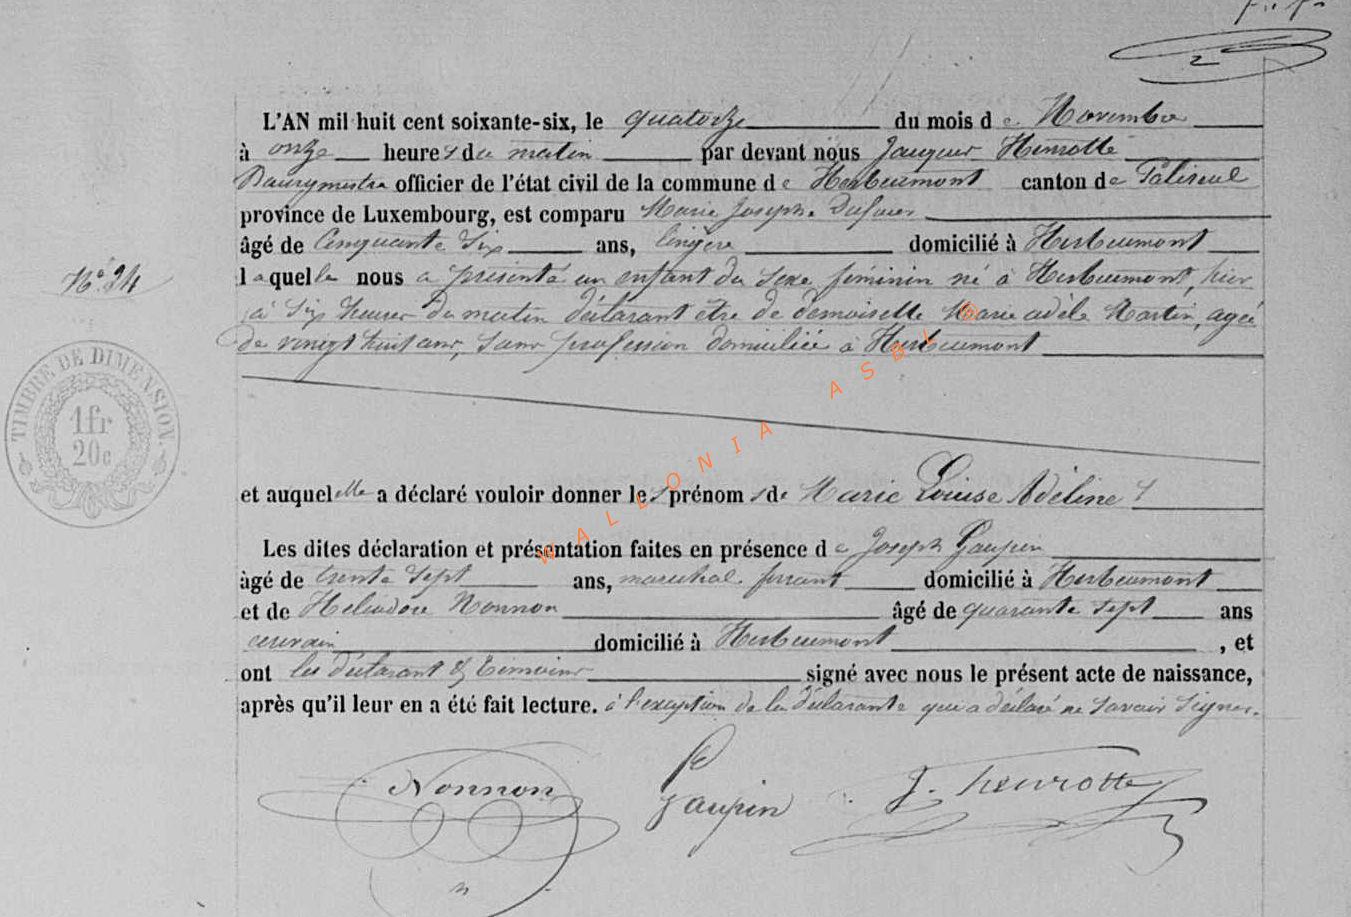 2
L'AN mil huit cent soixante-six, le quatorze du mois de Novembre
à onze heures du matin par devant nous Jacques Henrotte
Bourgmestre officier de l'état civil de la commune de Herbeumont canton de Paliseul
province de Luxembourg, est comparu Marie Josephe Dufour
âgé de Cinquante Six ans, lingère domicilié à Herbeumont
No. 24
laquelle nous a présenté un enfant du sexe féminin né à Herbeumont, hier
à Six heures du matin déclarant être de demoiselle Marie adèle Martin, agée
de vingt huit ans, Sans profession domiciliée à Herbeumont
TIMBRE DE DIMENSION.
1fr
20c
et auquelelle a déclaré vouloir donner les prénoms de Marie Louise Adéline
Les dites déclaration et présentation faites en présence de Joseph Gaupin
âgé de trente Sept ans, marechal ferrant domicilié à Herbeumont
et de Heliodore Nonnon âgé de quarante Sept ans
domicilié à Herbeumont , et
ont les déclarant & témoins signé avec nous le présent acte de naissance,
après qu'il leur en a été fait lecture. à l'exception de la déclarante qui a déclaré ne savoir Signer.
Nonnon Gaupin J. henrotte
WALLONIA ASBL ©